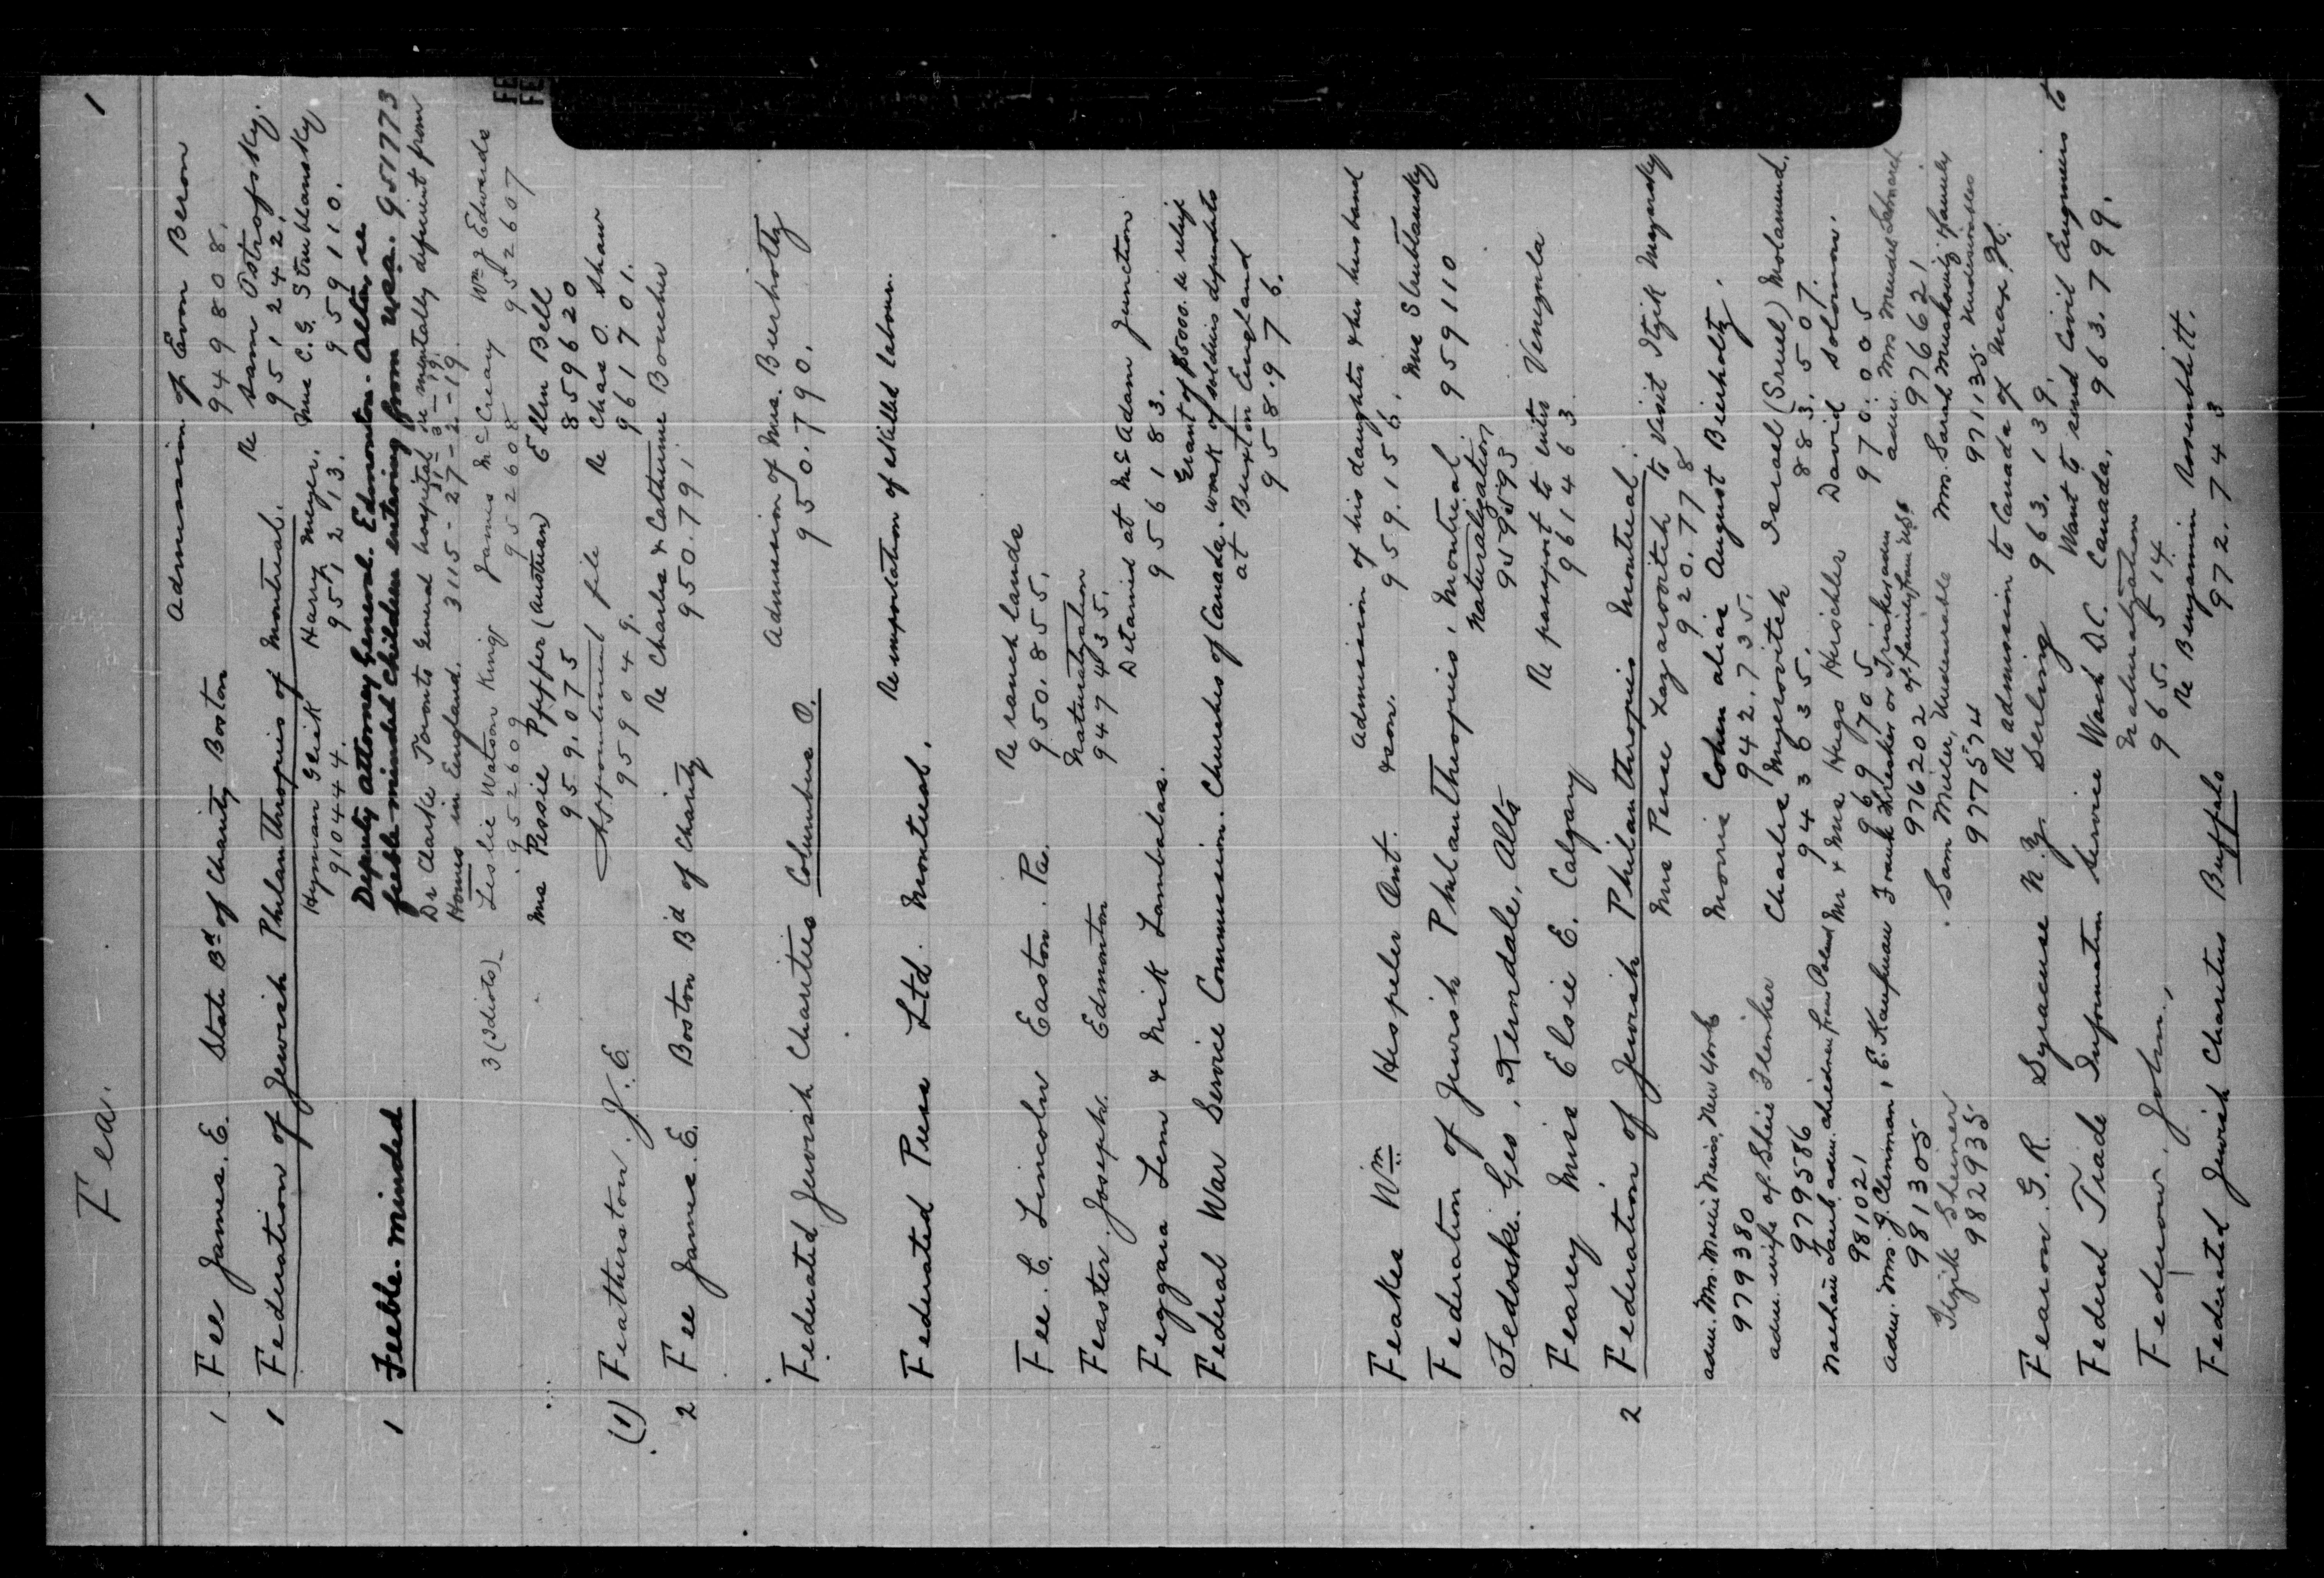 Fea. 1
1 Fee James. E. State Bd of Charity Boston Admission of Eron Beron
949808.
1 Federation of Jewish Philanthropies of Montreal. Re Sam Ostrofsky.
951242.
Hyman Geik Harry Meyer. Mrs C. G. Strublansky
910444. 951213. 959110.
1 Feeble-minded Deputy Attorney General. Edmonton. Alta, re
feeble-minded children entering from U.S.A. 951773
Dr Clarke Toronto General hospital re mentally deficient from
31-3-19.
Homes in England. 3115-27-2-19.
3 (Idiots) Leslie Watson King James McCreary Wm J Edwards
952609 952608 952607
Mrs Pessie Pfffer (Austrian) Ellen Bell
959.075 859620
(1) Featherston J. E. Appointment file Re Chas O. Shaw
959049. 961701.
2 Fee James. E. Boston Bd of Charity Re Charles & Catherine Boucher
950.791
Federated Jewish Charities Columbus O. Admission of Mrs. Beerholtz
950.790.
Federated Press Ltd. Montreal. Re importation of skilled labour.
Fee. C. Lincoln Easton. Pa. Re ranch lands
950.855.
Feaster Joseph. Edmonton Naturalization
947435.
Feggara Lem & Mik Lambalas. Detained at McAdam Junction
956183.
Federal War Service Commission. Churches of Canada. Grant of $5000. re relief
work of soldiers dependents
at Buxton England
958.976.
Feaker Wm Hespeler Ont. Admission of his daughter & her husband
& son. 959.156.
Federation of Jewish Philanthropies, Montreal. Mrs Strublansky
959110
Fedoski. Geo, Ferndale, Alta Naturalization
959593
Fearey Miss Elsie E. Calgary Re passport to enter Venezula
961463
2 Federation of Jewish Philanthropies Montreal.
Mrs Pesse Lazarovitch to visit Itzik Mayersky
920.778
adm. Mrs. Mollie Meiss, New York Morris Cohen alias August Beerholtz.
979380 942.735.
adm. wife of Sheie Fleisher Charles Meyerovitch Israel (Sruel) Molamend.
979586 943635. 883.507.
Nachain Taub, adm. children from Poland Mr & Mrs Hugo Herschler David Solomon.
981021 969705 970.005
adm. Mrs. J. Clemman, E. Kaufman Frank
981305 976202 of family from U.S. 976621
Itzik Sheiner Sam Miller, Undesirable Mrs. Sarah Muskovitz family
982935 977574 971135 Undesirables
Fearon. G. R. Syracuse N.Y. Re admission to Canada of Max H.
Serling 963.139.
Federal Trade Information Service Wash D.C. Want to send Civil Engineers to
Canada, 963.799.
Federow, John, Naturalization
965.514
Federated Jewish Charities Buffalo Re Benjamin Rosenblitt.
972.743